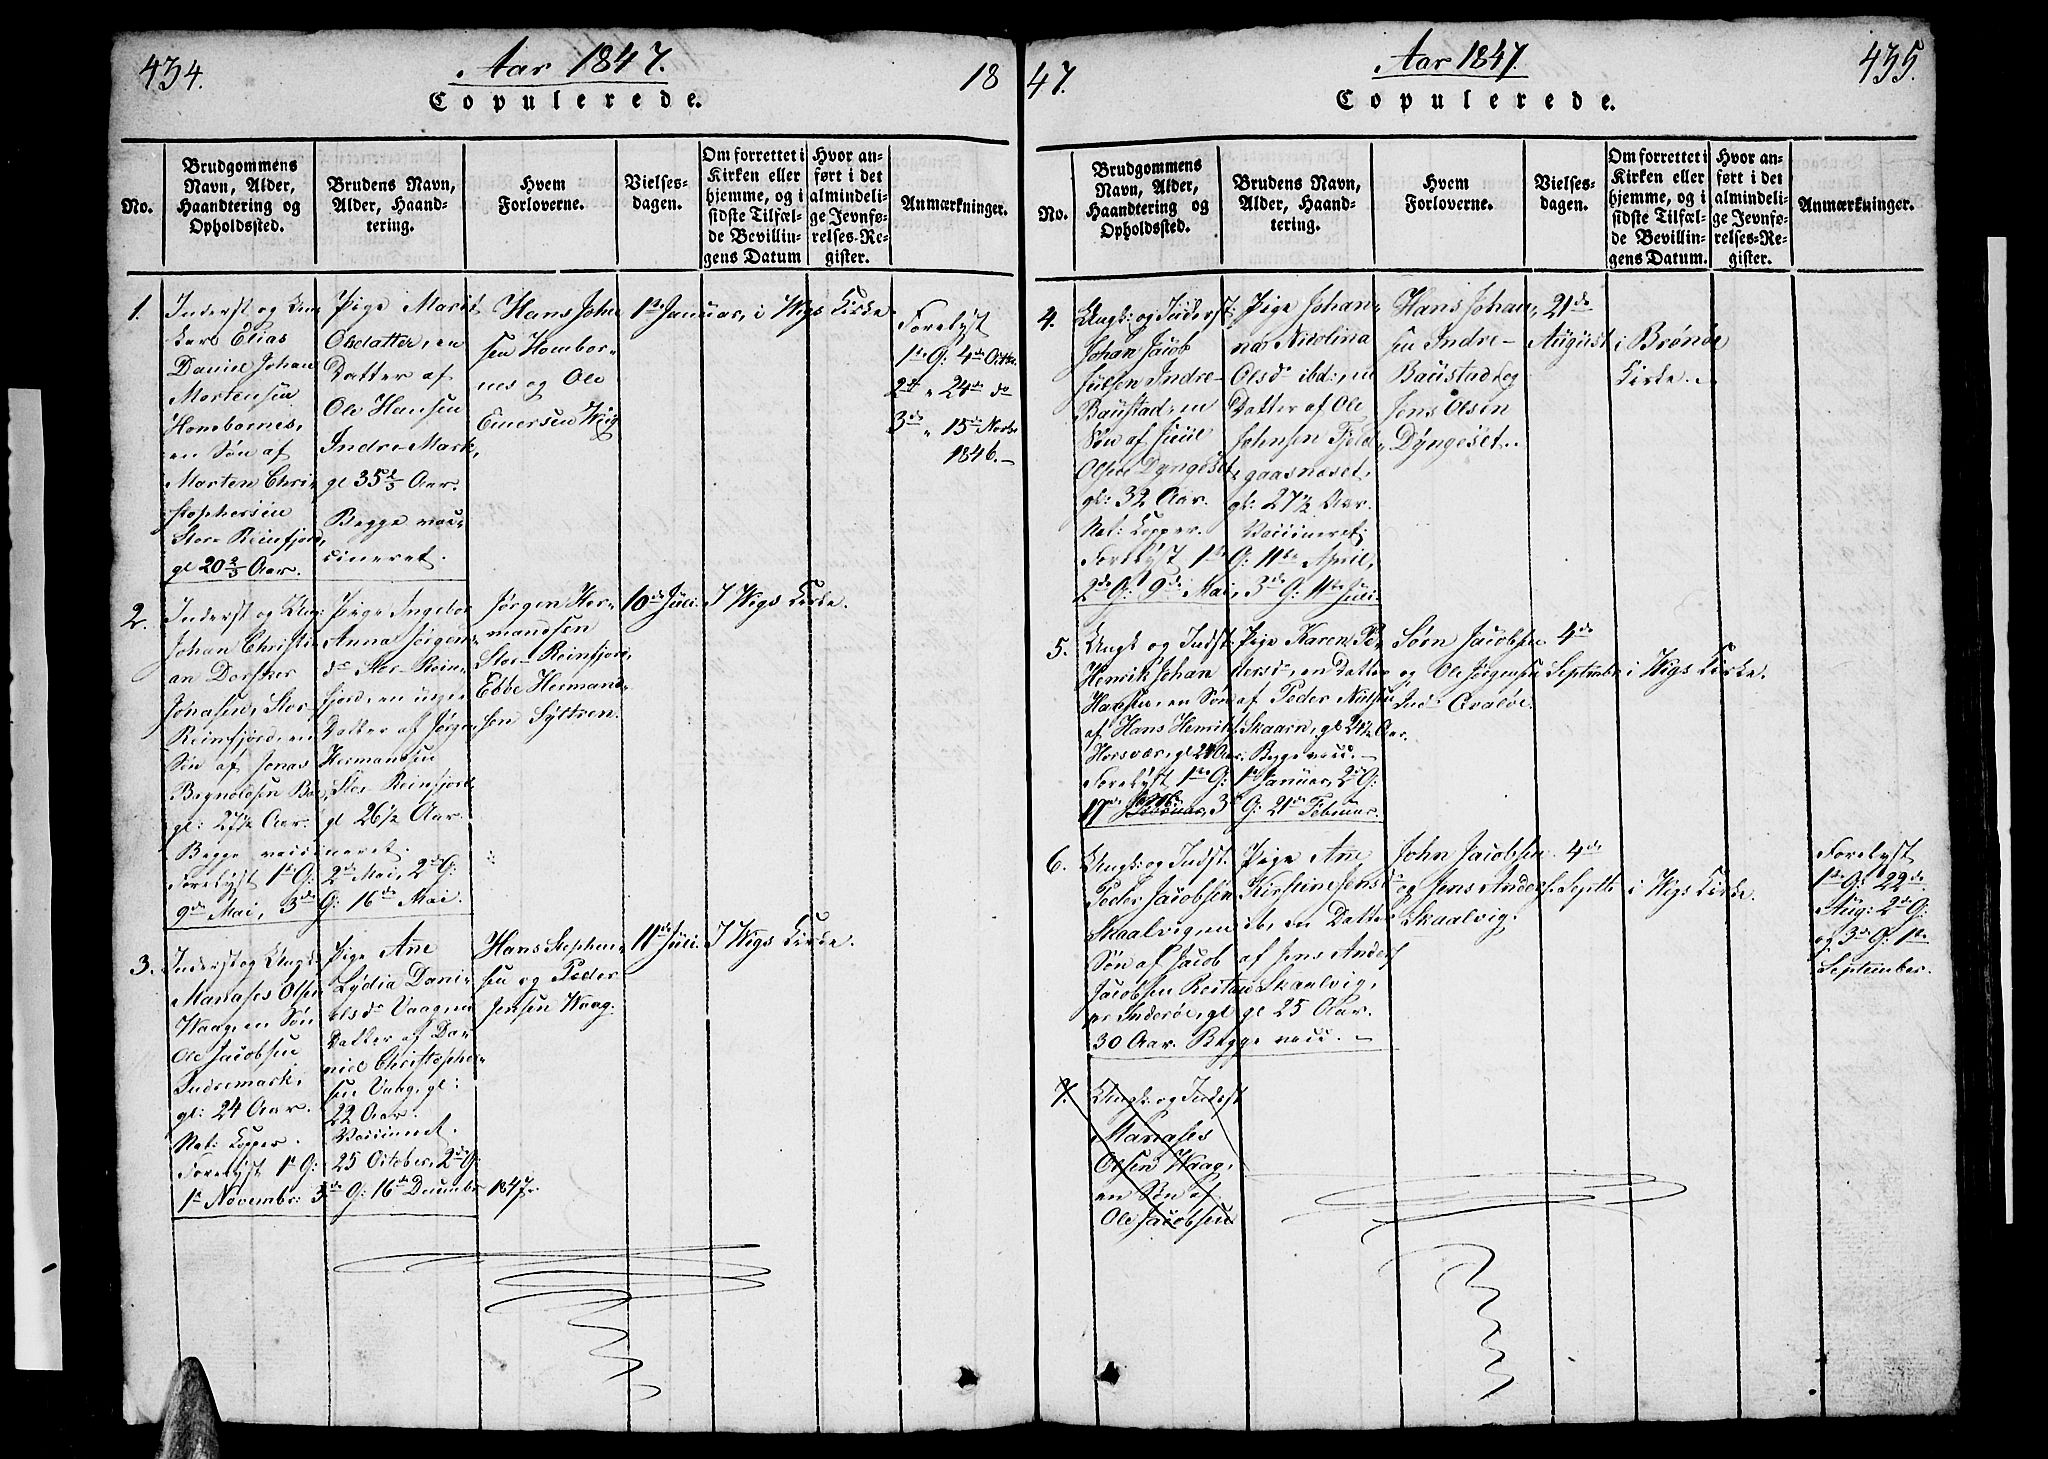 434.
Aar 1847.
18
Copulerede.
No.
Brudgommens
Navn, Alder,
Haandtering og
Opholdssted.
Brudens Navn,
Alder, Haand-
tering.
Hvem
Forloverne.
Vielses-
dagen.
Om forrettet i
Kirken eller
hjemme, og i
sidste Tilfæl-
de Bevillin-
gens Datum
Hvor an-
ført i det
almindeli-
ge Jevnfø-
relses-Re-
gister.
Anmærkninger.
1.
Inderst og Ung
karl Elias
Daniel Johan
Mortensen
Hombornes,
en Søn af
Morten Chri-
stophersen
Stor-Reinfjord,
gl 20 2/3 Aar.
Pige Marit
Olsdatter, en
Datter af
Ole Hansen
Indre-Mark,
gl 35 2/3 Aar.
Begge vac-
cineret.
Hans John
sen Hombor-
nes og Ole
Enersen Wiig
1ste Januar,
i Wigs Kirke
Forelyst
1ste G: 4de Octbr
2de " 24de do
3de " 15de Novbr
1846.
2.
Inderst og Ung:
Johan Christi-
an Dorfner
Jonasen, Stor-
Reinfjord, en
Søn af Jonas
Bagnoldsen
gl: 27½ Aar.
Begge vaccineret.
Forelyst 1ste G: 2de Mai, 2de G:
9de Mai, 3de G: 16de Mai.
Pige Ingebor
Anna Jørgens-
dr Stor-Rein-
fjord, en
Datter af Jørgen
Hermansen
Stor Reinfjord,
gl 26½ Aar.
Jørgen Her-
mandsen
Stor-Reinfjord,
Ebbe Hermand-
sen Sÿttren.
10de Juli.
I Wigs Kirke.
3.
Inderst og Ungk:
Manases Olsen
Waag, en Søn
Ole Jacobsen
Indremark,
gl: 24 Aar.
Nat: Kopper.
Forelyst 1ste G: 25 October, 2de G:
1ste Novembr: 3de G: 16de Decembr 1847.
Pige Ane
Lydia Dani-
elsdr Vaag, en
Datter af Da-
niel Christophe-
sen Vaag, gl:
22 Aar.
Vaccineret.
Hans Stephen-
sen og Peder
Jensen Waag.
11te Juli.
I Wigs Kirke.
47.
Aar 1847.
435.
Copulerede.
No.
Brudgommens
Navn, Alder,
Haandtering og
Opholdssted.
Brudens Navn,
Alder, Haand-
tering.
Hvem
Forloverne.
Vielses-
dagen.
Om forrettet i
Kirken eller
hjemme, og i
sidste Tilfæl-
de Bevillin-
gens Datum.
Hvor an-
ført i det
almindeli-
ge Jevnfø-
relses-Re-
gister.
Anmærkninger.
4.
Ungk: og Inderst:
Johan Jacob
Juelsen Indre-
Baustad, en
Søn af Juul
Olsen Dyngeset,
gl: 32 Aar.
Nat: Kopper.
Forelyst 1ste G: 11te April,
2de G: 9de Mai, 3de G: 11te Juli
Pige Johan-
na Nicolina
Olsdr ibd:, en
Datter af Ole
Johnsen Fjeld-
gaasnæset,
gl: 27½ Aar.
Vaccineret.
Hans Johan-
sen Indre-
Baustad og
Jens Olsen
Dyngeset.
21de
August
i Brønøe
Kirke.
5.
Ungk og Indst:
Henrik Johan
Hansen, en Søn
af Hans Henrik
Horsvær, gl 24 Aar.
Forelyst 1ste G: 1ste Januar, 2de G:
17de 3de G: 21de Februar.
Pige Karen Pe-
tersdr, en Datter
af Peder Nielsen
Skaarn, gl 24½ Aar.
Begge vacc.
Sørn Jacobsen
og Ole Jørgensen
Ind-Qvaløe.
4de
Septembr
i Wigs Kirke.
6.
Ungk: og Indst:
Peder Jacobsen
Skaalvigen
Søn af Jacob
Jacobsen
pr Inderøe, gl
30 Aar. Begge vacc.
Pige Ane
Kirstine Jensdr
ib, en Datter
af Jens Anders
Skaalvig,
gl 25 Aar.
John Jacobsen
og Jens Anders:
Skaalvig.
4de
Septbr
i Wigs Kirke.
Forelyst
1ste G: 22de
Aug: 2de G:
og 3de G: 1ste
September.
7.
Ungk: og Inderst
Manases
Olsen Waag,
en Søn af
Ole Jacobsen